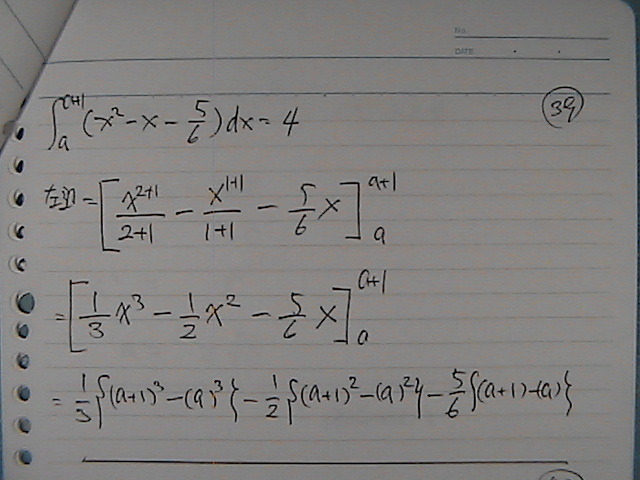 No.
DATE
39
∫_a^{a+1} (x² - x - 5/6) dx = 4
左辺 = [ x^{2+1}/(2+1) - x^{1+1}/(1+1) - 5/6 x ]_a^{a+1}
= [ 1/3 x³ - 1/2 x² - 5/6 x ]_a^{a+1}
= 1/3 {(a+1)³ - (a)³} - 1/2 {(a+1)² - (a)²} - 5/6 {(a+1) - (a)}